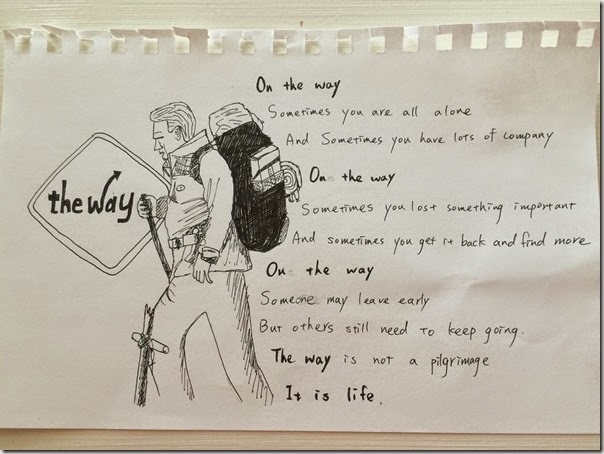 the way
On the way
Sometimes you are all alone
And Sometimes you have lots of company
On the way
Sometimes you lost something important
And sometimes you get it back and find more
On the way
Someone may leave early
But others still need to keep going.
The way is not a pilgrimage
It is life.